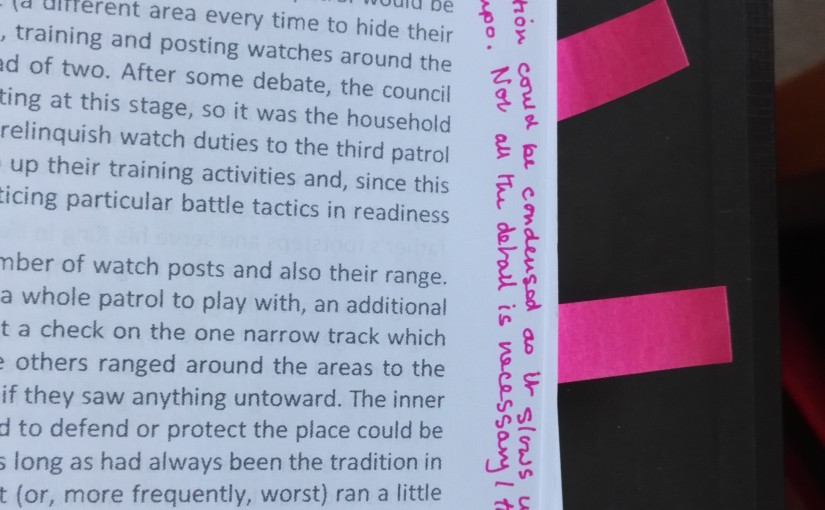 (a different area every time to hide their
, training and posting watches around the
of two. After some debate, the council
ting at this stage, so it was the household
relinquish watch duties to the third patrol
up their training activities and, since this
ticing particular battle tactics in readiness
mber of watch posts and also their range.
a whole patrol to play with, an additional
t a check on the one narrow track which
e others ranged around the areas to the
if they saw anything untoward. The inner
d to defend or protect the place could be
s long as had always been the tradition in
t (or, more frequently, worst) ran a little
tion could be condensed as it slows
mpo. Not all the detail is necessary /